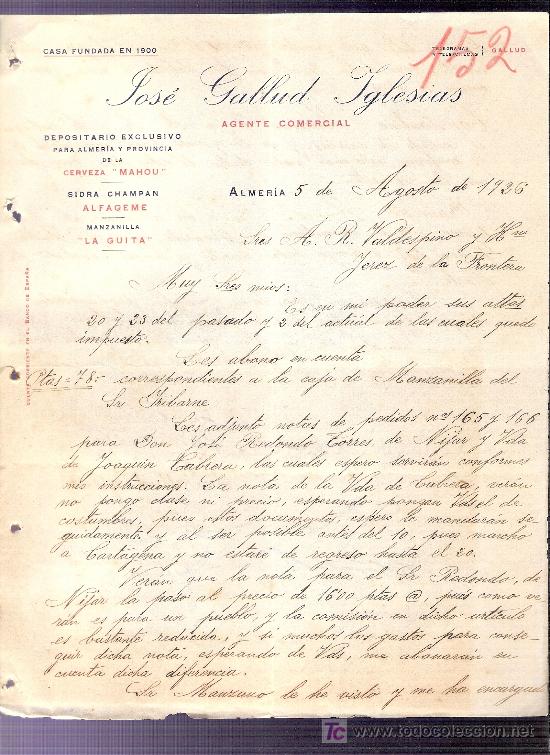 CASA FUNDADA EN 1900
TELEGRAMAS
GALLUD
152
José Gallud Iglesias
AGENTE COMERCIAL
DEPOSITARIO EXCLUSIVO
PARA ALMERÍA Y PROVINCIA
DE LA
CERVEZA "MAHOU"
SIDRA CHAMPAN
ALFAGEME
MANZANILLA
"LA GUITA"
CUENTA CORRIENTE EN EL BANCO DE ESPAÑA
ALMERÍA 5 de Agosto de 1926
Sres A. R. Valdespino y Hno
Jerez de la Frontera
Muy Sres mios:
Es en mi poder sus attas
20 y 23 del pasado y 2 del actual de las cuales quedo
impuesto.
Les abono en cuenta
Ptas = 78.- correspondientes a la caja de Manzanilla del
Sr Iribarne
Les adjunto notas de pedidos nº 165 y 166
para Don José Redondo Torres de Nijar y Vda
de Joaquin Cabeza, las cuales espero servirán conformes
mis instrucciones. La nota de la Vda de Cubeta, verán
no pongo clase ni precio, esperando pongan Vds el de
costumbres, pues estos documentos, espero lo mandarán se-
guidamente y al ser posible antes del 10, pues marcho
a Cartagena y no estaré de regreso hasta el 20.
Verán que la nota para el Sr Redondo, de
Nijar la paso al precio de 1600 ptas @, pues como ve-
rán es para un pueblo, y la comisión en dicho artículo
es bastante reducida, y si muchos los gastos para conse-
guir dicha nota, esperando de Vds, me abonarán en
cuenta dicha diferencia.
Sr Manzano le he visto y me ha encargado
www.todocoleccion.net